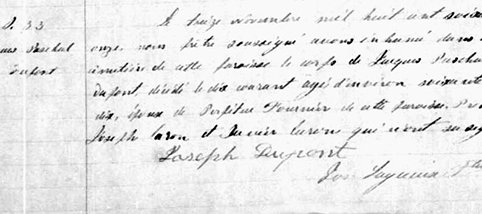 S. 33
Jacques Paschal
Dupont
Le treize décembre mil huit cent soixante
onze nous prêtre soussigné avons inhumé dans le
cimetière de cette paroisse le corps de Jacques Paschal
Dupont, décédé le dix courant agé d'environ soixante
dix, époux de Perpétue Fournier de cette paroisse. Présents
Joseph Caron et Xavier Caron qui n'ont su signer
Joseph Dupont
Jos